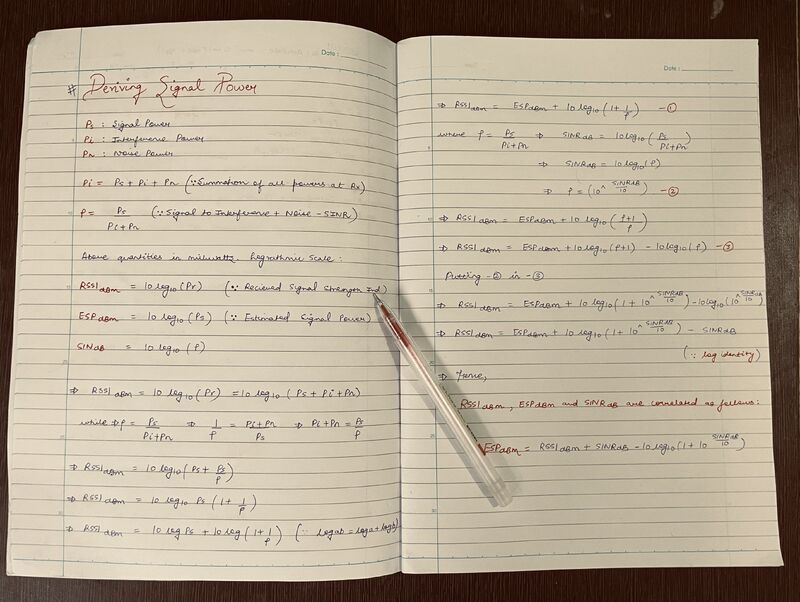 Date:
# Deriving Signal Power
Ps : Signal Power
Pi : Interference Power
Pn : Noise Power
Pi = Ps + Pi + Pn (∵ Summation of all powers at Rx)
ρ = Ps / (Pi+Pn) (∵ Signal to Interference + Noise - SINR)
Above quantities in miliwatts. Lograthmic Scale :
RSSI dBm = 10 log10 (Pr) (∵ Recieved Signal Strength Ind)
ESP dBm = 10 log10 (Ps) (∵ Estimated Signal Power)
SIN dB = 10 log10 (ρ)
⇒ RSSI dBm = 10 log10 (Pr) = 10 log10 (Ps + Pi + Pn)
while ⇒ ρ = Ps / (Pi+Pn) ⇒ 1/ρ = (Pi+Pn) / Ps ⇒ Pi+Pn = Ps/ρ
⇒ RSSI dBm = 10 log10 (Ps + Ps/ρ)
⇒ RSSI dBm = 10 log10 Ps (1 + 1/ρ)
⇒ RSSI dBm = 10 log Ps + 10 log (1 + 1/ρ) (∵ log ab = log a + log b)
Date:
⇒ RSSI dBm = ESP dBm + 10 log10 (1 + 1/ρ) - ①
where ρ = Ps / (Pi+Pn) ⇒ SINR dB = 10 log10 (Ps / (Pi+Pn))
⇒ SINR dB = 10 log10 (ρ)
⇒ ρ = (10^ SINR dB/10) - ②
⇒ RSSI dBm = ESP dBm + 10 log10 ((ρ+1)/ρ)
⇒ RSSI dBm = ESP dBm + 10 log10 (ρ+1) - 10 log10 (ρ) - ③
Putting - ② in - ③
⇒ RSSI dBm = ESP dBm + 10 log10 (1 + 10^ SINR dB/10) - 10 log10 (10^ SINR dB/10)
⇒ RSSI dBm = ESP dBm + 10 log10 (1 + 10^ SINR dB/10) - SINR dB
(∵ log identity)
⇒ Hence,
RSSI dBm, ESP dBm and SINR dB are correlated as follows:
ESP dBm = RSSI dBm + SINR dB - 10 log10 (1 + 10 SINR dB/10)